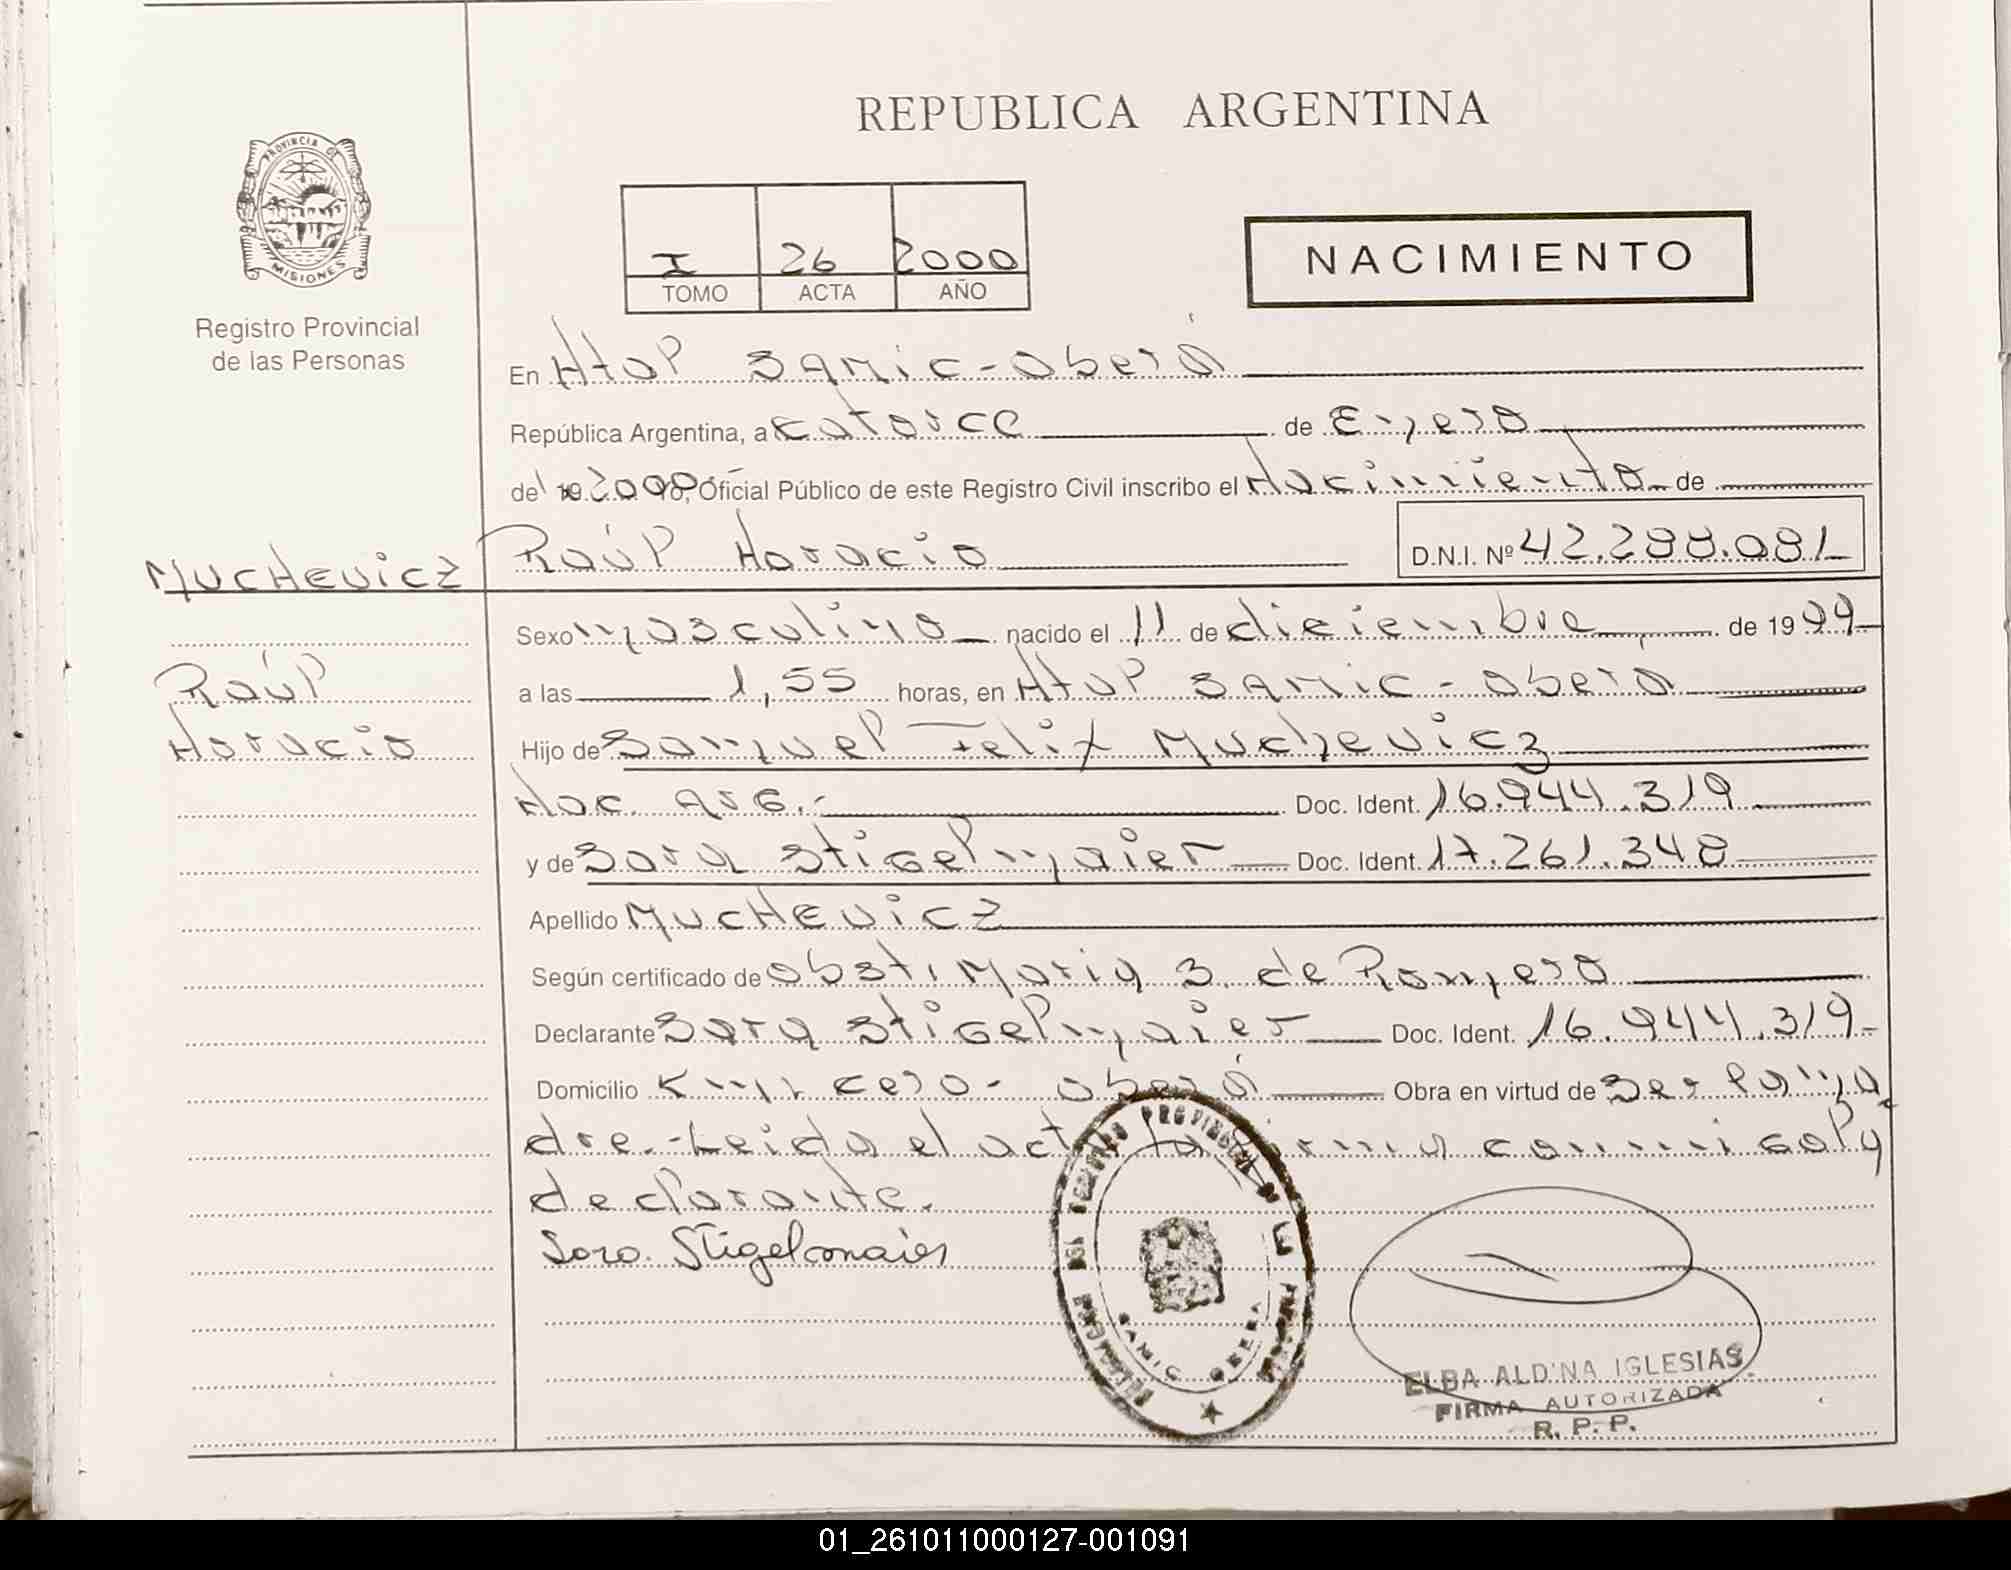 REPUBLICA ARGENTINA
PROVINCIA DE
MISIONES
Registro Provincial
de las Personas
I 26 2000
TOMO ACTA AÑO
NACIMIENTO
En Htal Samic - Oberá
República Argentina, a catorce de Enero
del 2000, Oficial Público de este Registro Civil inscribo el Nacimiento de
MUCHEVICZ Raúl Horacio D.N.I. Nº 42.288.081
Sexo masculino nacido el 11 de diciembre de 1999
Raúl
a las 1,55 horas, en Htal Samic - Oberá
Horacio
Hijo de Samuel Felix Muchevicz
Nac. Arg.- Doc. Ident. 16.944.319
y de Sara Stigelmaier Doc. Ident. 17.261.348
Apellido MUCHEVICZ
Según certificado de Obst. Maria S. de Romero
Declarante Sara Stigelmaier Doc. Ident. 16.944.319
Domicilio Km. cero - Oberá Obra en virtud de ser la ma
dre.- Leida el act la firma conmigo la
declarante.
Sara Stigelmaier
SAMIC OBERA
ELBA ALDINA IGLESIAS
FIRMA AUTORIZADA
R. P. P.
01_261011000127-001091